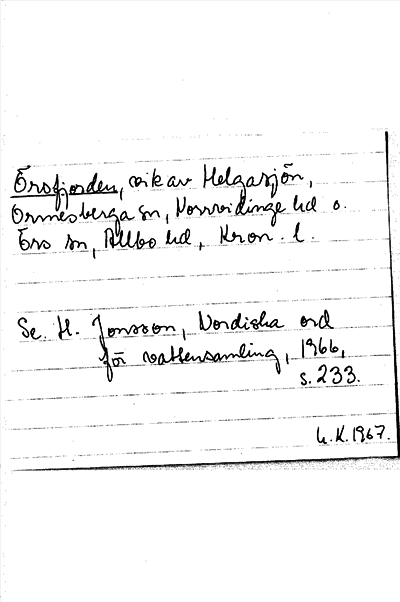 Örsfjorden, vik av Helgasjön,
Ormesberga sn, Norrvidinge hd o.
Örs sn, Allbo hd, Kron. l.
Se H. Jonsson, Nordiska ord
för vattensamling, 1966,
s. 233.
L.K. 1967.